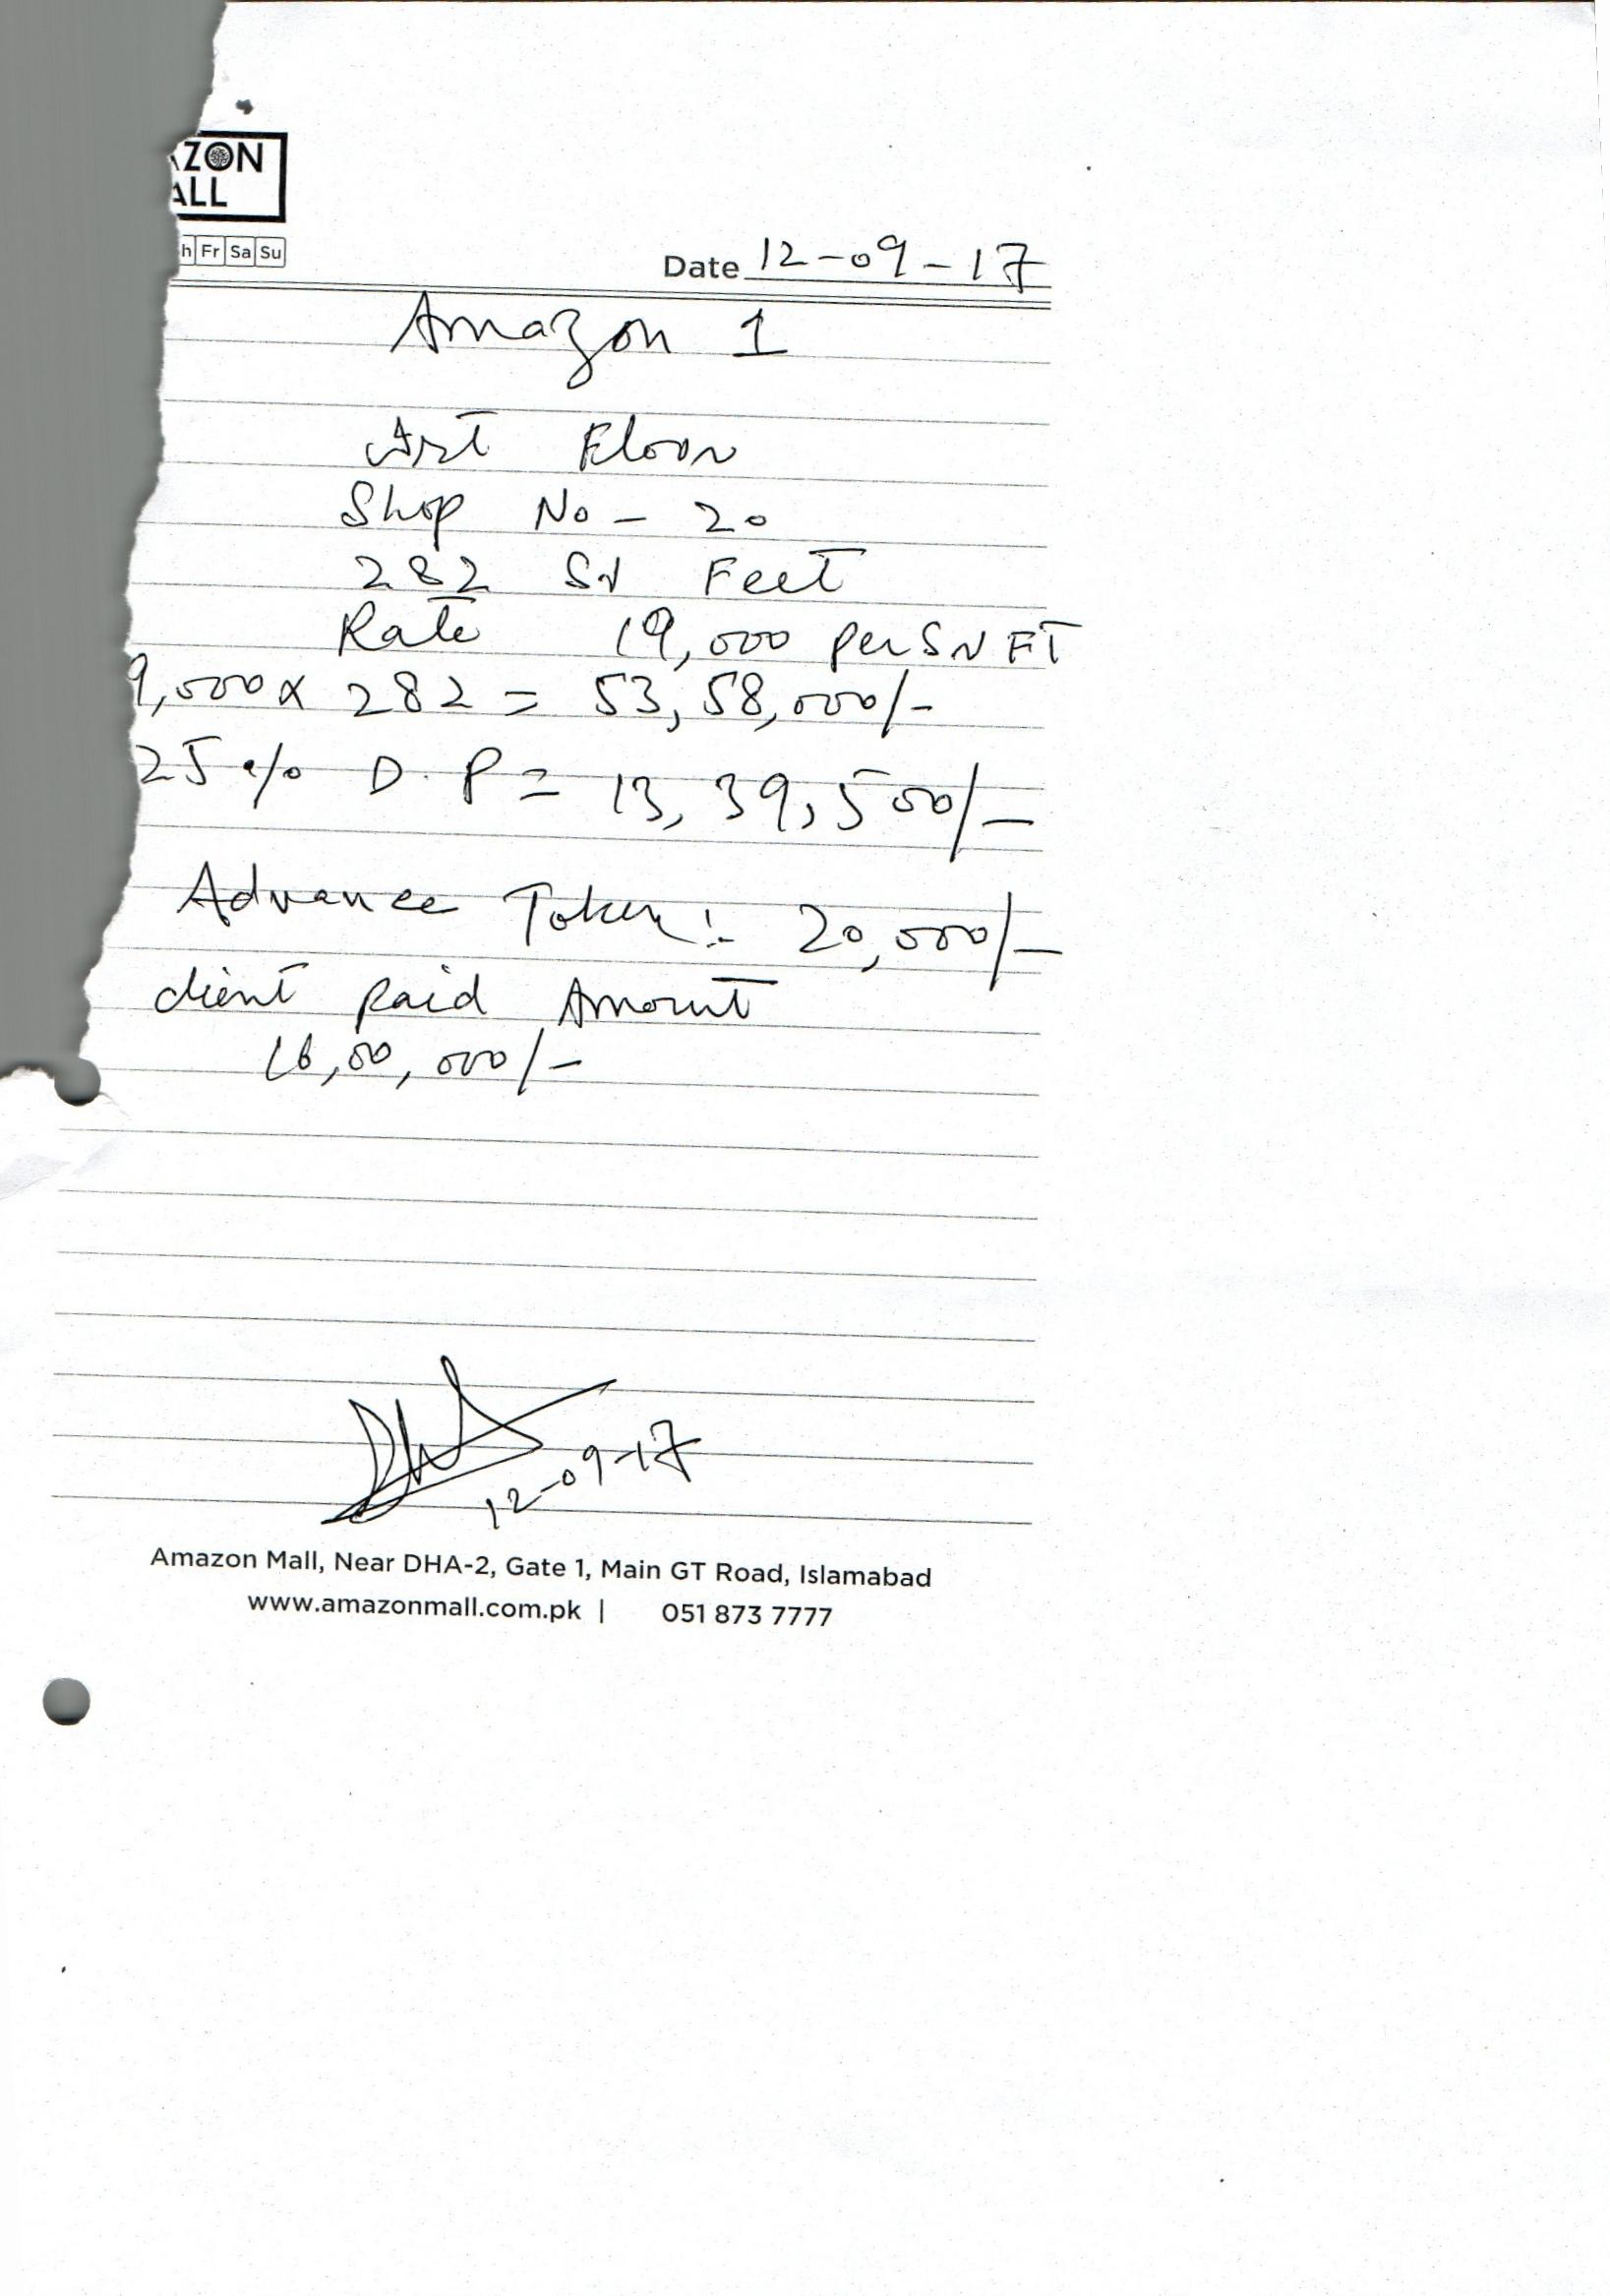 ZON
ALL
h Fr Sa Su
Date 12-09-17
Amazon 1
Floor
Shop No - 20
282 Sq Feet
Rate 19,000 Per Sq FT
9,000 x 282 = 53,58,000/-
25 % D.P = 13,39,500/-
Advance Token:- 20,000/-
client Paid Amount
16,00,000/-
12-09-17
Amazon Mall, Near DHA-2, Gate 1, Main GT Road, Islamabad
www.amazonmall.com.pk | 051 873 7777